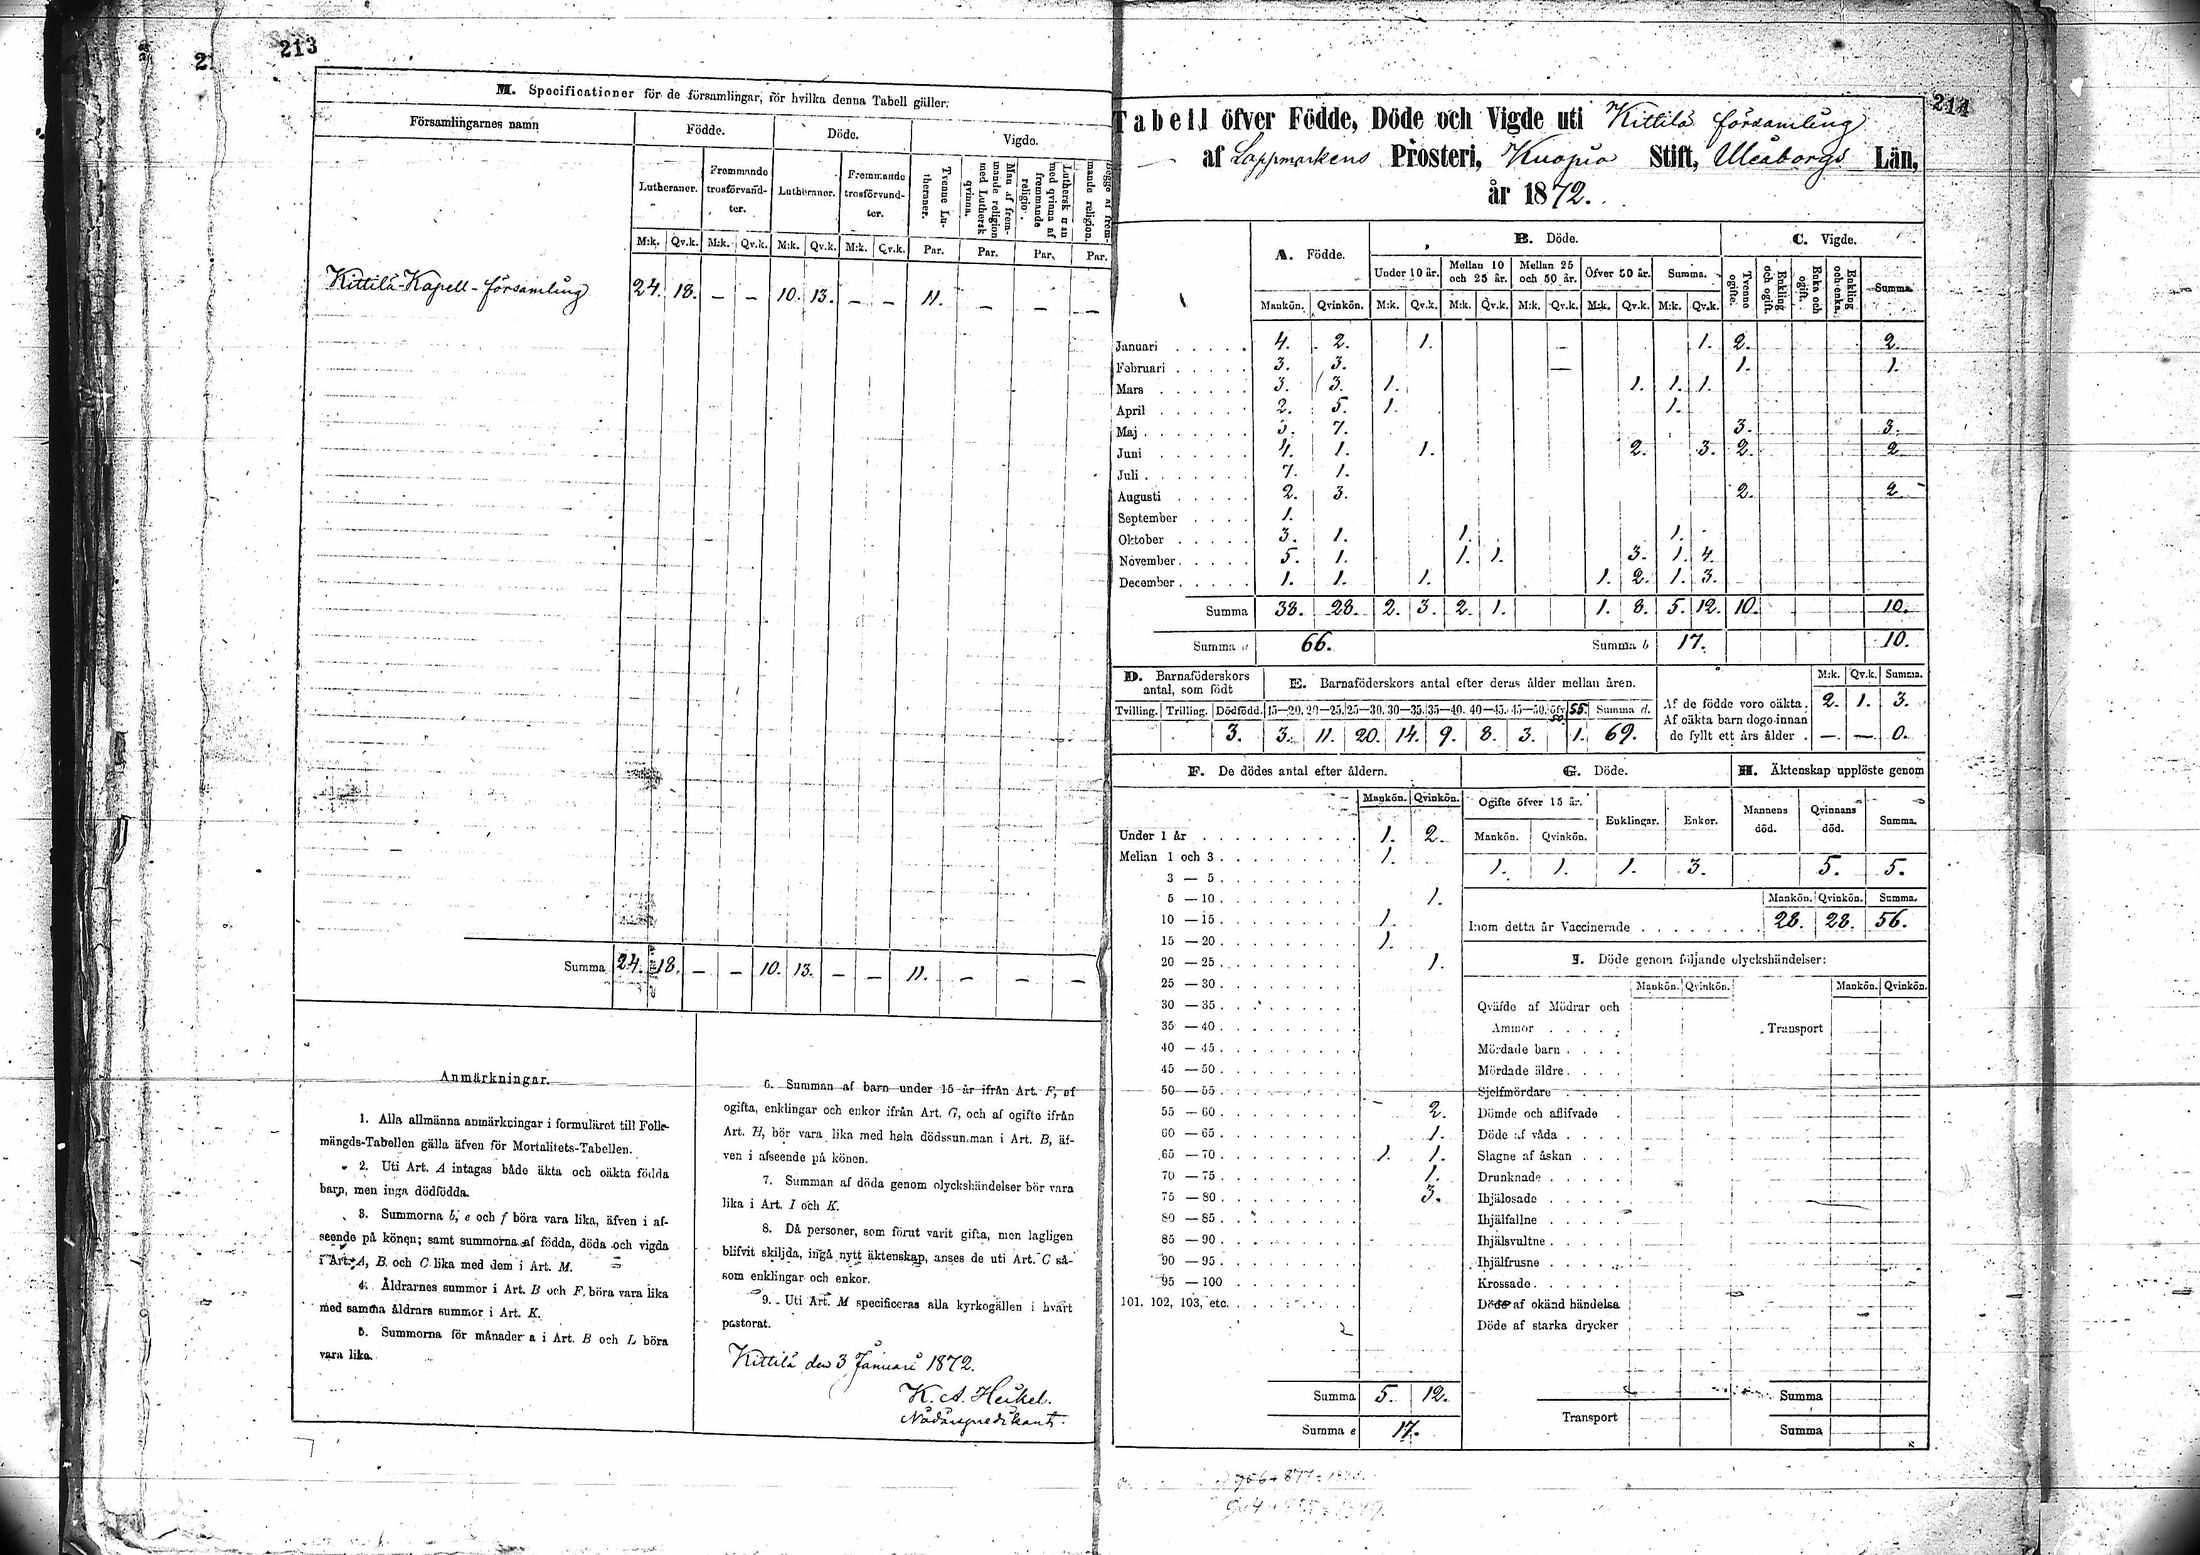 213
2
M. Specificationer för de församlingar, för hvilka denna Tabell gäller:
Församlingarnes namn
Födde.
Döde.
Vigde.
Lutheraner.
Fremmande trosförvandter.
Lutheraner.
Fremmande trosförvandter.
Tvenne Lutheraner.
Man af fremmande religion med Luthersk qvinna.
Luthersk man med qvinna af fremmande religion.
Begge af fremmande religion.
M:k. Qv.k. M:k. Qv.k. M:k. Qv.k. M:k. Qv.k. Par. Par. Par. Par.
Kittilä-Kapell-församling 24. 18. — — 10. 13. — — 11. — — —
Summa 24. 18. — — 10. 13. — — 11. — — —
Anmärkningar.
1. Alla allmänna anmärkningar i formuläret till Folk-
mängds-Tabellen gälla äfven för Mortalitets-Tabellen.
2. Uti Art. A intagas både äkta och oäkta födda
barn, men inga dödfödda.
3. Summorna b, e och f böra vara lika, äfven i af-
seende på könen; samt summorna af födda, döda och vigda
i Art. A, B och C lika med dem i Art. M.
4. Åldrarnes summor i Art. B och F, böra vara lika
med samma åldrars summor i Art. K.
5. Summorna för månaderna i Art. B och L böra
vara lika.
6. Summan af barn under 15 år ifrån Art. F, af
ogifta, enklingar och enkor ifrån Art. G, och af ogifte ifrån
Art. H, bör vara lika med hela dödssumman i Art. B, äf-
ven i afseende på könen.
7. Summan af döda genom olyckshändelser bör vara
lika i Art. I och K.
8. Då personer, som förut varit gifta, men lagligen
blifvit skiljda, ingå nytt äktenskap, anses de uti Art. C så-
som enklingar och enkor.
9. Uti Art. M specificeras alla kyrkogällen i hvart
pastorat.
Kittilä den 3 Januari 1872.
K. A. Heikel.
Nådårspredikant.
214
Tabell öfver Födde, Döde och Vigde uti Kittilä församling
af Lappmarkens Prosteri, Kuopio Stift, Uleåborgs Län,
år 1872.
A. Födde.
B. Döde.
C. Vigde.
Under 10 år. Mellan 10 och 25 år. Mellan 25 och 50 år. Öfver 50 år. Summa.
Tvenne ogifte. Enkling och ogift. Enka och ogift. Enkling och enka. Summa.
Mankön. Qvinkön. M:k. Qv.k. M:k. Qv.k. M:k. Qv.k. M:k. Qv.k. M:k. Qv.k.
Januari 4. 2. 1. — 1. 2. 2.
Februari 3. 3. — 1. 1.
Mars 3. 3. 1. 1. 1. 1.
April 2. 5. 1. 1.
Maj 3. 7. 3. 3.
Juni 4. 1. 1. 2. 3. 2. 2
Juli 7. 1.
Augusti 2. 3. 2. 2
September 1.
Oktober 3. 1. 1. 1.
November 5. 1. 1. 1. 3. 1. 4.
December 1. 1. 1. 1. 2. 1. 3.
Summa 38. 28. 2. 3. 2. 1. 1. 8. 5. 12. 10. 10.
Summa a 66. Summa b 17. 10.
D. Barnaföderskors antal, som födt
Tvilling. Trilling. Dödfödd.
3.
E. Barnaföderskors antal efter deras ålder mellan åren.
15—20. 20—25. 25—30. 30—35. 35—40. 40—45. 45—50. öfv. 50 55. Summa d.
3. 11. 20. 14. 9. 8. 3. 1. 69.
M:k. Qv.k. Summa.
Af de födde voro oäkta 2. 1. 3.
Af oäkta barn dogo innan
de fyllt ett års ålder — — 0.
F. De dödes antal efter åldern.
Mankön. Qvinkön.
Under 1 år 1. 2.
Mellan 1 och 3 1.
3 — 5
5 — 10 1.
10 — 15 1.
15 — 20 1.
20 — 25 1.
25 — 30
30 — 35
35 — 40
40 — 45
45 — 50
50 — 55
55 — 60 2.
60 — 65 1.
65 — 70 1. 1.
70 — 75 1.
75 — 80 3.
80 — 85
85 — 90
90 — 95
95 — 100
101, 102, 103, etc.
Summa 5. 12.
Summa e 17.
G. Döde.
Ogifte öfver 15 år. Enklingar. Enkor.
Mankön. Qvinkön.
1. 1. 1. 3.
H. Äktenskap upplöste genom
Mannens död. Qvinnans död. Summa.
5. 5.
Mankön. Qvinkön. Summa.
Inom detta år Vaccinerade 28. 28. 56.
I. Döde genom följande olyckshändelser:
Mankön. Qvinkön. Mankön. Qvinkön.
Qväfde af Mödrar och
Ammor
Transport
Mördade barn
Mördade äldre
Sjelfmördare
Dömde och aflifvade
Döde af våda
Slagne af åskan
Drunknade
Ihjälosade
Ihjälfallne
Ihjälsvultne
Ihjälfrusne
Krossade
Döde af okänd händelse
Döde af starka drycker
Summa
Transport
Summa